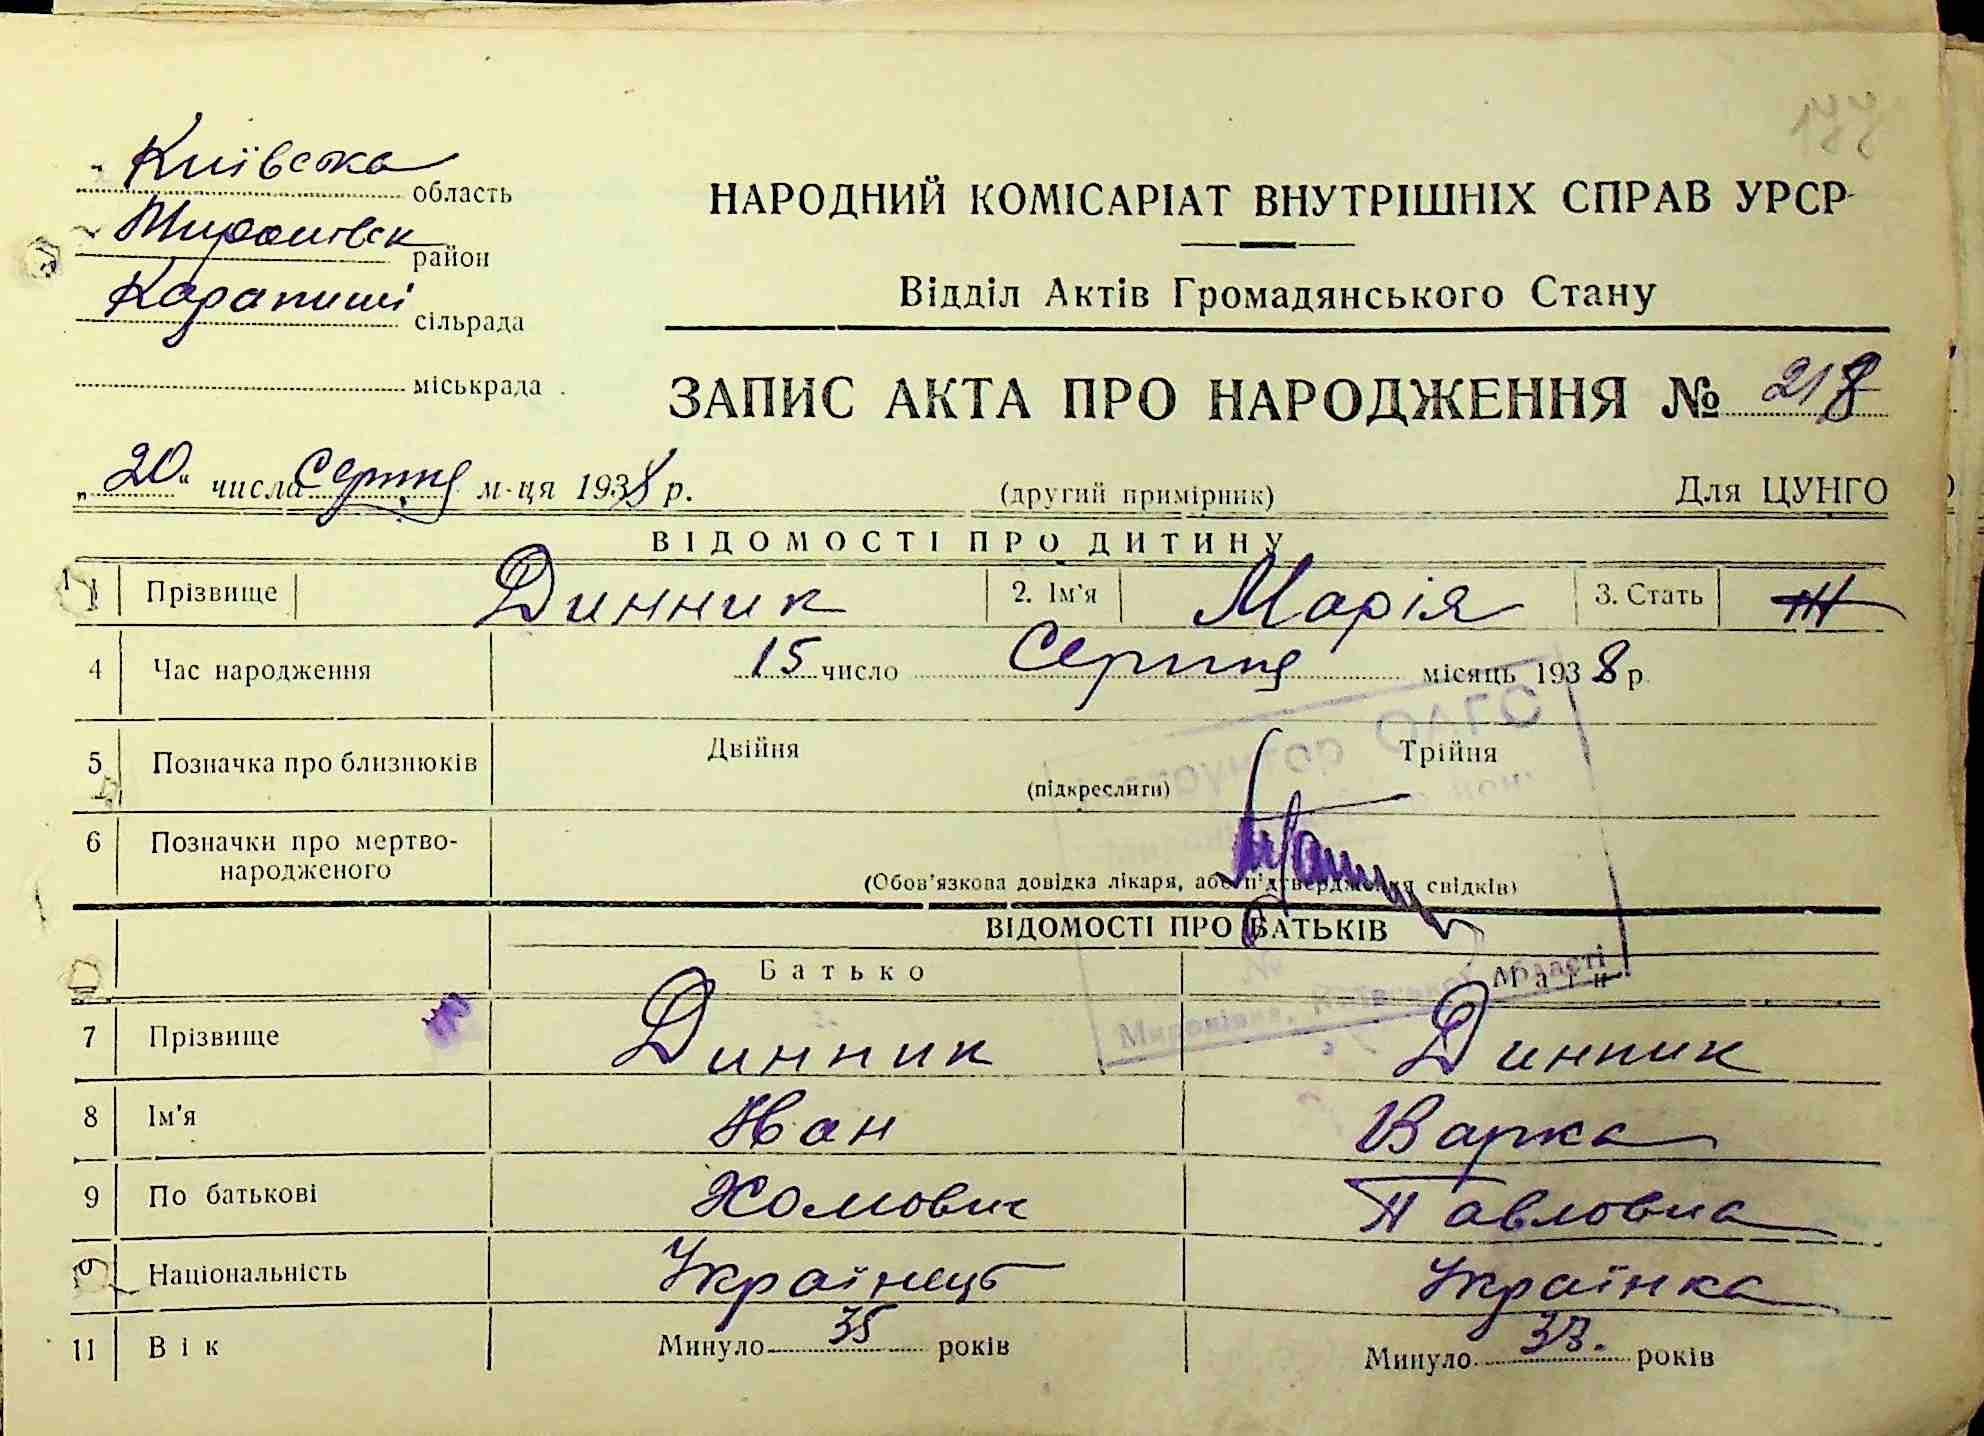 Київська область
Миронівськ район
Карапиші сільрада
міськрада
НАРОДНИЙ КОМІСАРІАТ ВНУТРІШНІХ СПРАВ УРСР
Відділ Актів Громадянського Стану
ЗАПИС АКТА ПРО НАРОДЖЕННЯ № 218
„20“ числа Серпня м-ця 1938 р. (другий примірник) Для ЦУНГО
ВІДОМОСТІ ПРО ДИТИНУ
1 Прізвище Динник 2. Ім'я Марія 3. Стать Ж
4 Час народження 15 число Серпня місяць 1938 р.
5 Позначка про близнюків Двійня Трійня
(підкреслити)
6 Позначки про мертво-
народженого
(Обов'язкова довідка лікаря, або підтвердження свідків)
ВІДОМОСТІ ПРО БАТЬКІВ
Батько Мати
7 Прізвище Динник Динник
8 Ім'я Иван Варка
9 По батькові Хомович Павловна
Національність Українець Українка
11 Вік Минуло 35 років Минуло 33. років